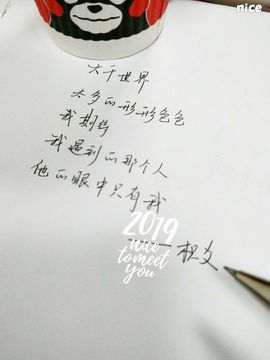 nice
大千世界
太多的形形色色
我期待
我遇到的那个人
他的眼中只有我
2019
nice
to meet
you
—权文